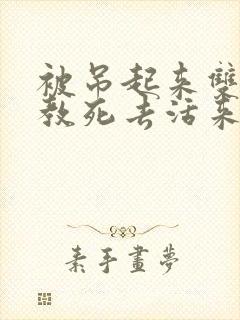 被吊起来双
教死去活来
素手画梦